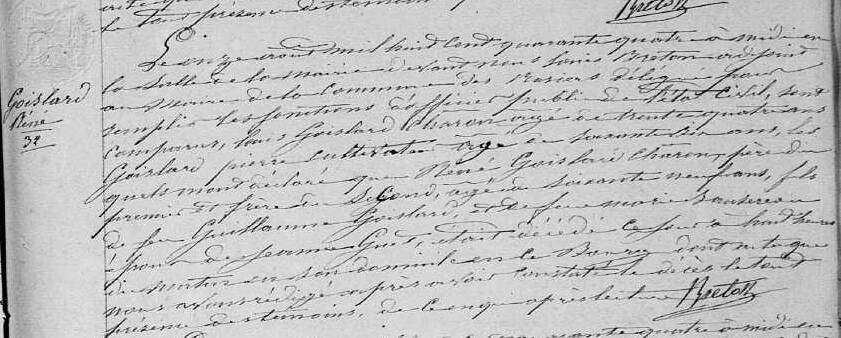 le tout présence des témoins
Breton
Goislard
René
32
Le onze août mil huit cent quarante quatre à midi en
la salle de la mairie devant nous Louis Breton adjoint
au maire de la commune des Rosiers délégué pour
remplir les fonctions d'officier public de l'état civil, sont
comparus, Louis Goislard charon agé de trente quatre ans
Goislard pierre cultivateur agé de soixante dix ans, les
quels mont déclaré que René Goislard charon, père du
premier et frère du second, agé de soixante neuf ans, fils
de feu Guillaume Goislard, et de feu marie
époux de jeanne était décédé ce jour à huit heures
du matin en son domicile en le Bourg dont acte que
nous avons rédigé apres avoir constaté le décès le tout
présence des témoins, de ce enqui après lecture Breton
quarante quatre à midi en